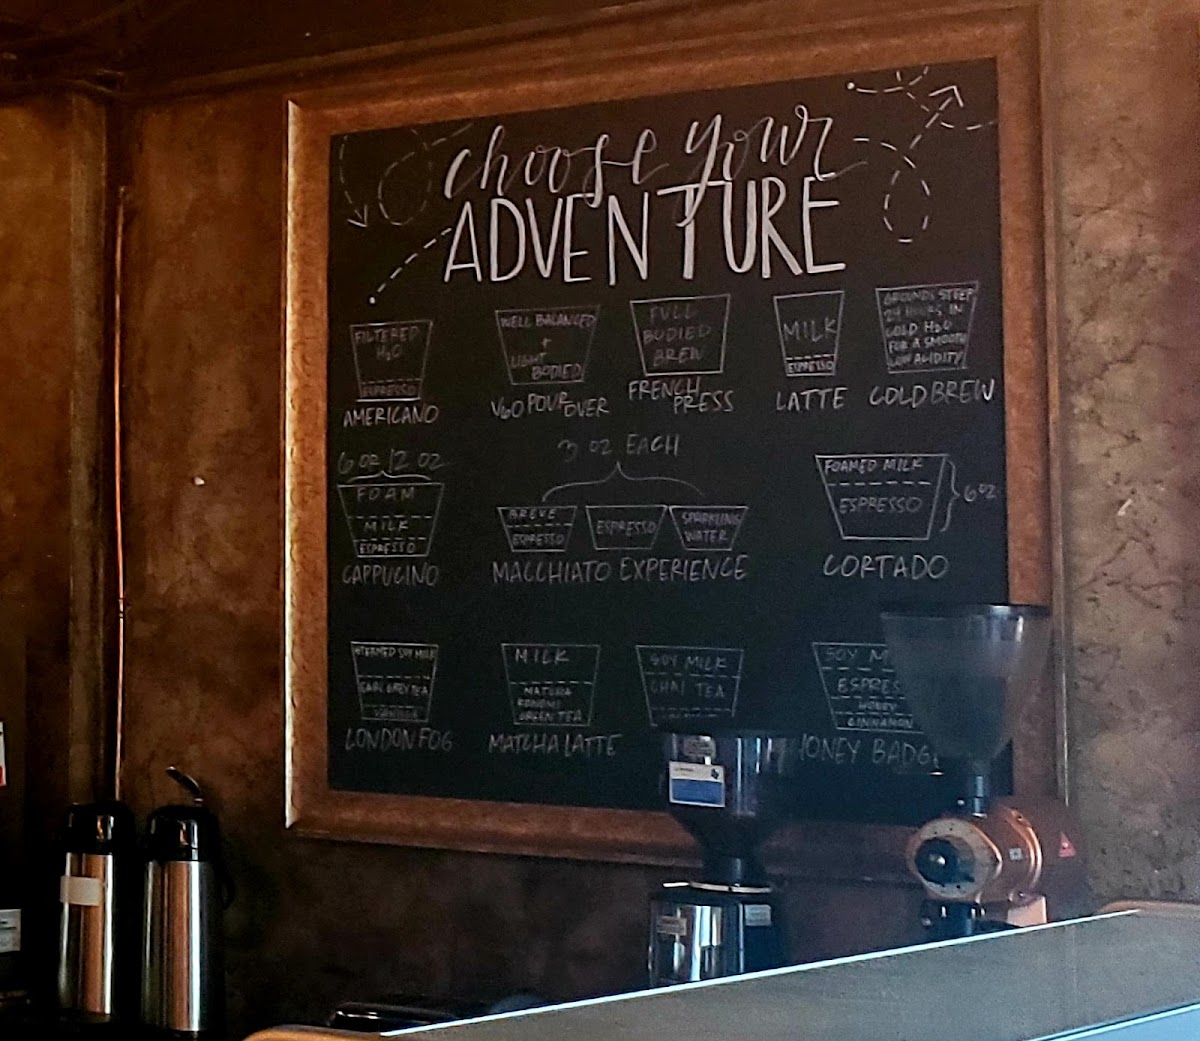 choose your
ADVENTURE
FILTERED
H2O
ESPRESSO
AMERICANO
WELL BALANCED
+
LIGHT
BODIED
V60 POUR OVER
FULL
BODIED
BREW
FRENCH
PRESS
MILK
ESPRESSO
LATTE
GROUNDS STEEP
24 HOURS IN
COLD H2O
FOR A SMOOTH
LOW ACIDITY
COLD BREW
6 OR 12 OZ
FOAM
MILK
ESPRESSO
CAPPUCINO
3 OZ EACH
BREVE
ESPRESSO
ESPRESSO
SPARKLING
WATER
MACCHIATO EXPERIENCE
FOAMED MILK
ESPRESSO
6 OZ
CORTADO
STEAMED SOY MILK
EARL GREY TEA
VANILLA
LONDON FOG
MILK
MATCHA
GREEN TEA
MATCHA LATTE
SOY MILK
CHAI TEA
SOY M
ESPRES
HONEY
CINNAMON
HONEY BADG